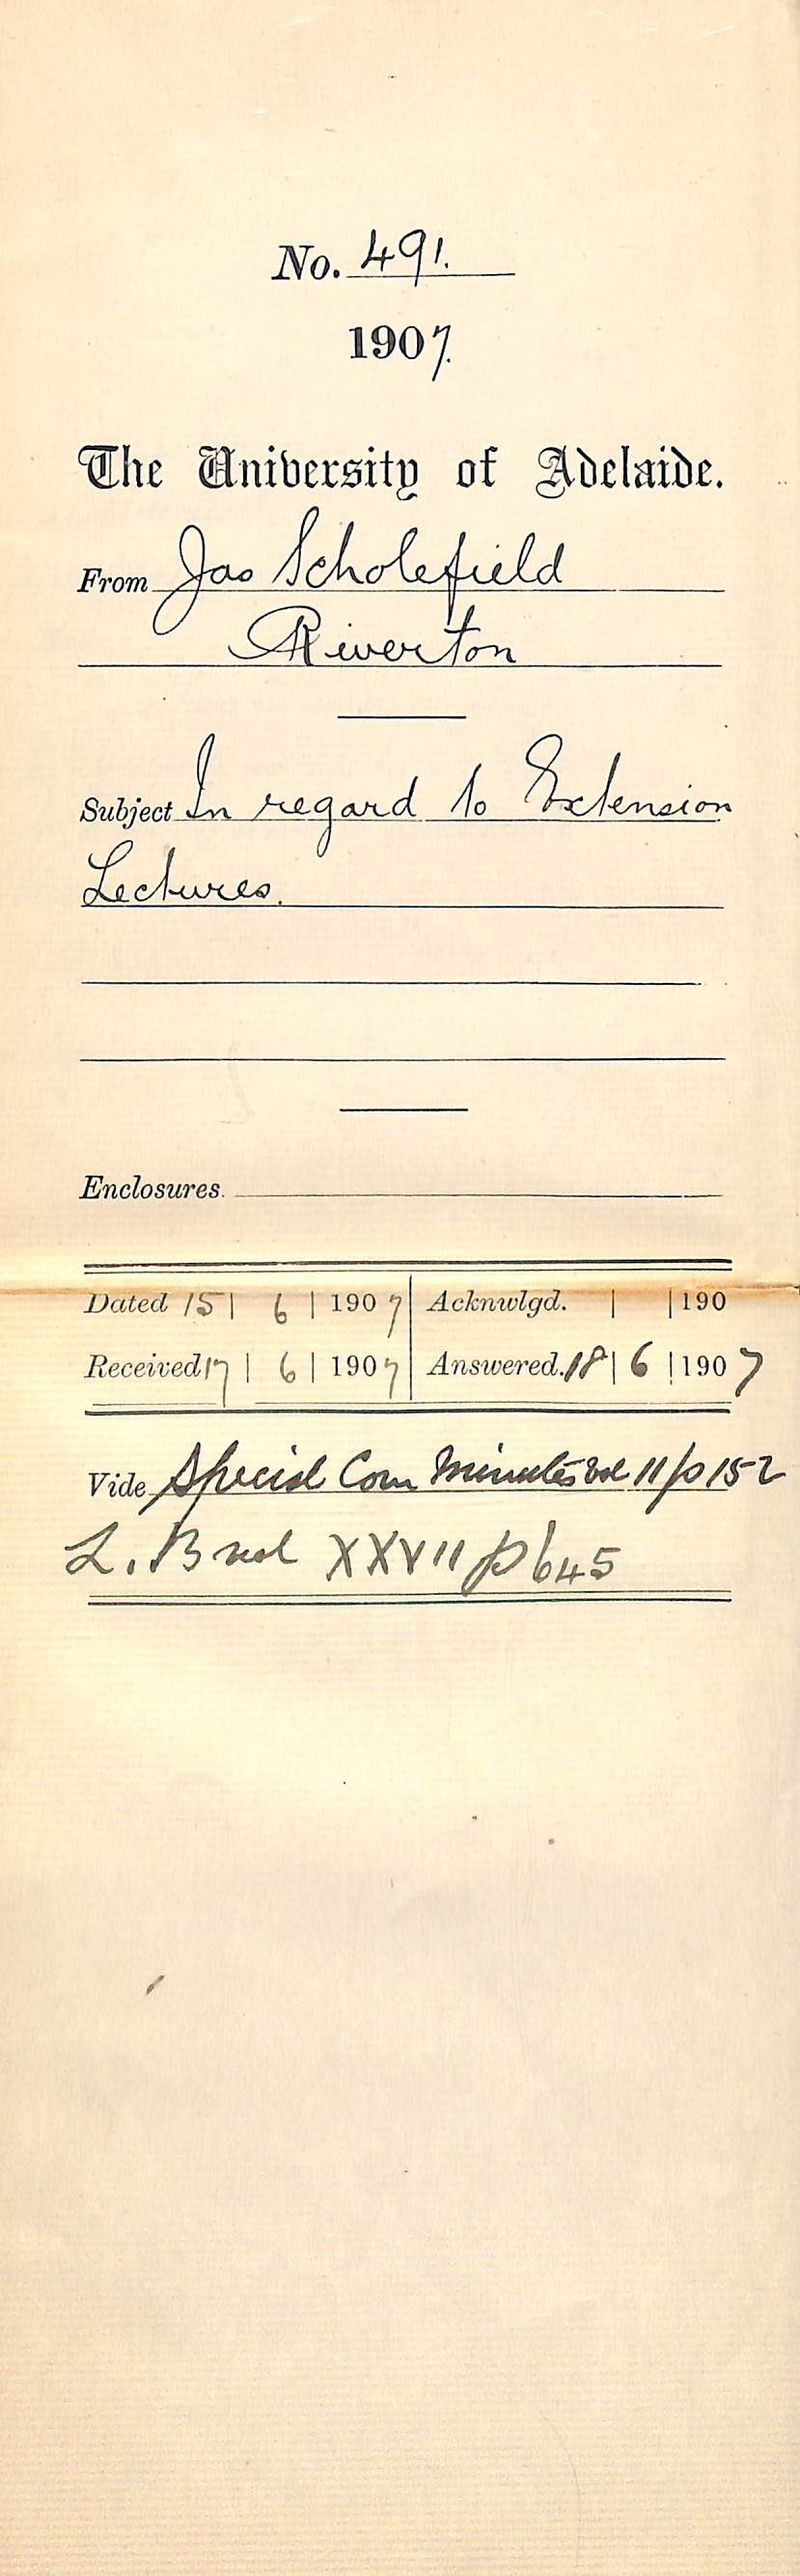 No. 491.
1907.
The University of Adelaide.
From Jas Scholefield
Riverton
Subject In regard to Extension
Lectures.
Enclosures.
Dated 15 | 6 | 1907 Acknwlgd. | | 190
Received 17 | 6 | 1907 Answered. 18 | 6 | 1907
Vide Special Com Minutes vol 11 p 152
L. B vol XXVII p 645